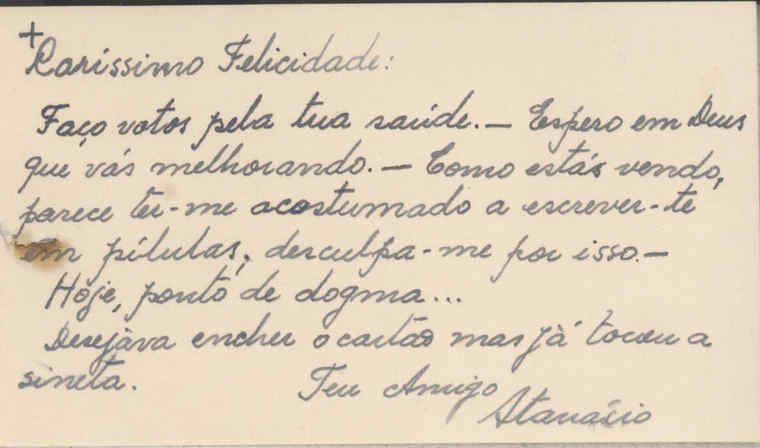 +
Caríssimo Felicidade:
Faço votos pela tua saúde. — Espero em Deus
que vás melhorando. — Como estás vendo,
parece ter-me acostumado a escrever-te
em pílulas; desculpa-me por isso. —
Hoje, ponto de dogma...
Desejava encher o cartão mas já tocou a
sineta. Teu Amigo
Atanásio